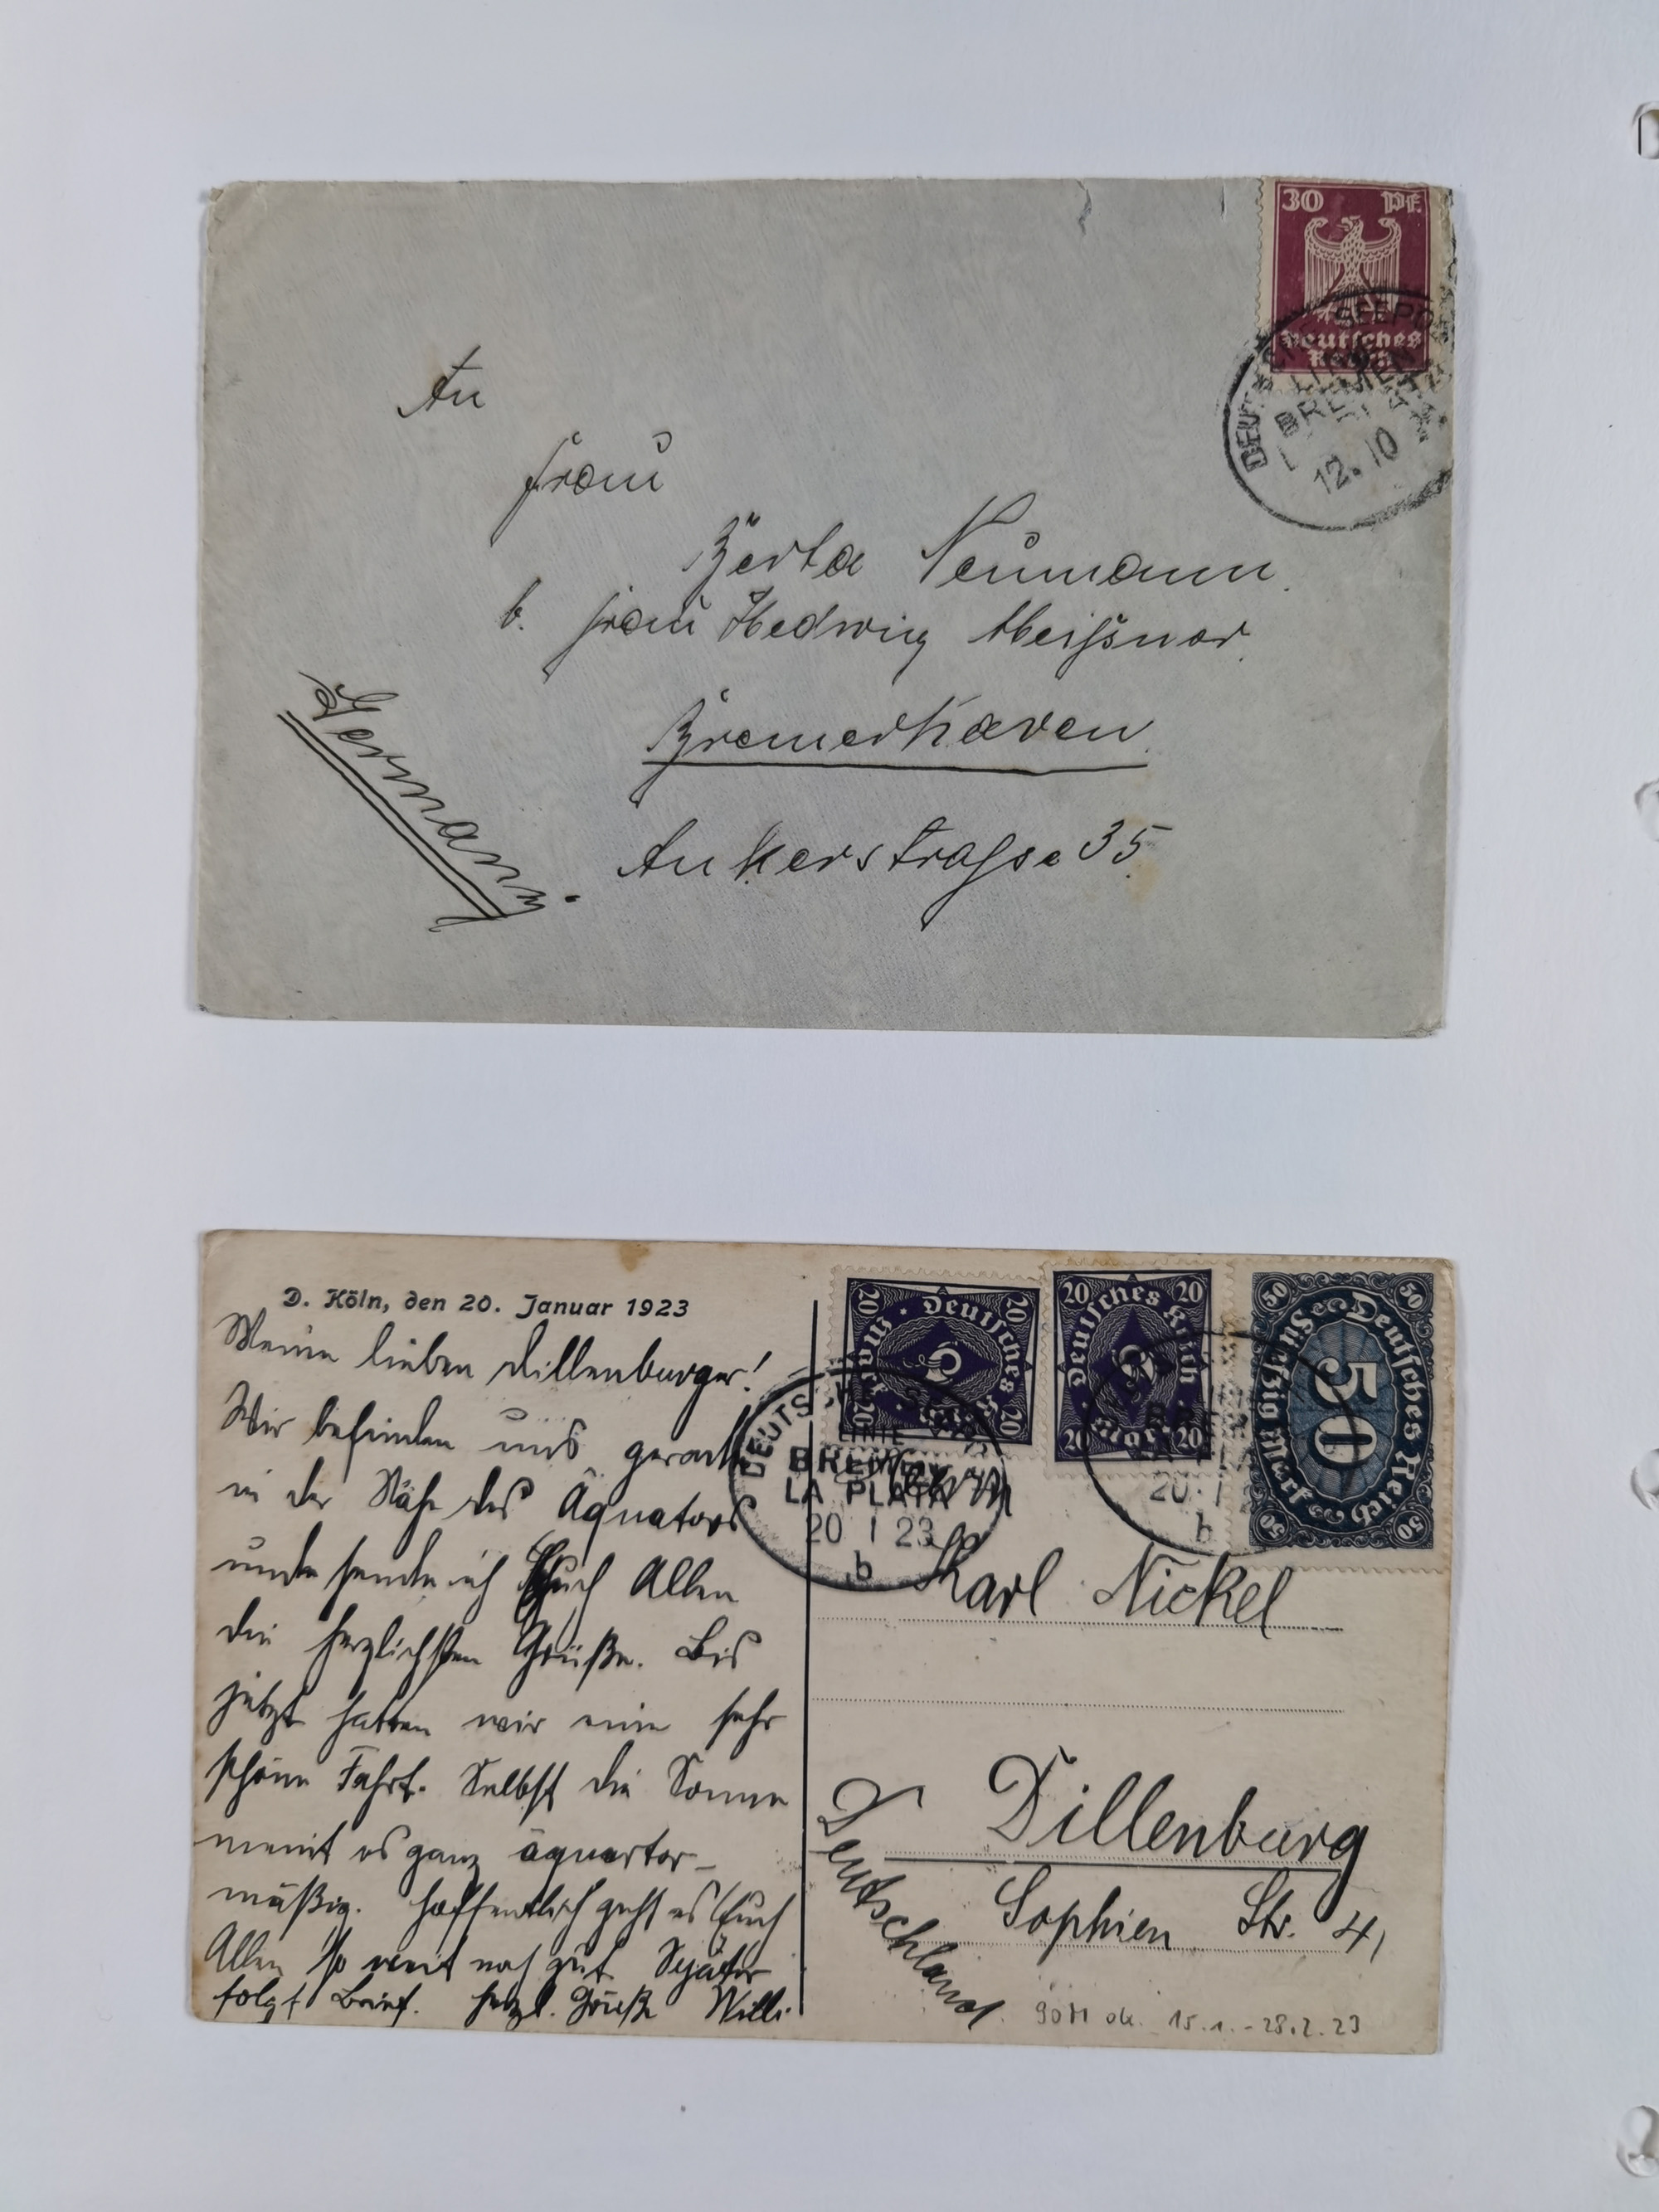 30 Pf.
Deutsches
Reich
DEUTSCHE SEEPOST
LINIE
BREMEN
12. 10
An
Frau
Berta Neumann.
b. Frau Hedwig Meißner.
Bremerhaven.
Ankerstrasse 35.
Germany.
D. Köln, den 20. Januar 1923
Meine lieben Dillenburger!
Wir befinden uns gerade
in der Nähe des Äquators
und sende ich Euch Allen
die herzlichsten Grüße. Bis
jetzt hatten wir eine sehr
schöne Fahrt. Selbst die Sonne
meint es ganz äquator-
mäßig. Hoffentlich geht es Euch
Allen so weit noch gut. Später
folgt Brief. Herzl. Grüße Willi.
20 Deutsches Reich 20
20 Mark 20
20 Deutsches Reich 20
20 Mark 20
50 Deutsches Reich 50
50
50 Fünfzig Mark 50
DEUTSCHE SEEPOST
LINIE
BREMEN
LA PLATA
20 1 23
b
BREM
20. 1
b
Herrn
Karl Nickel
Dillenburg
Sophien Str. 41
Deutschland.
15.1.-28.2.23